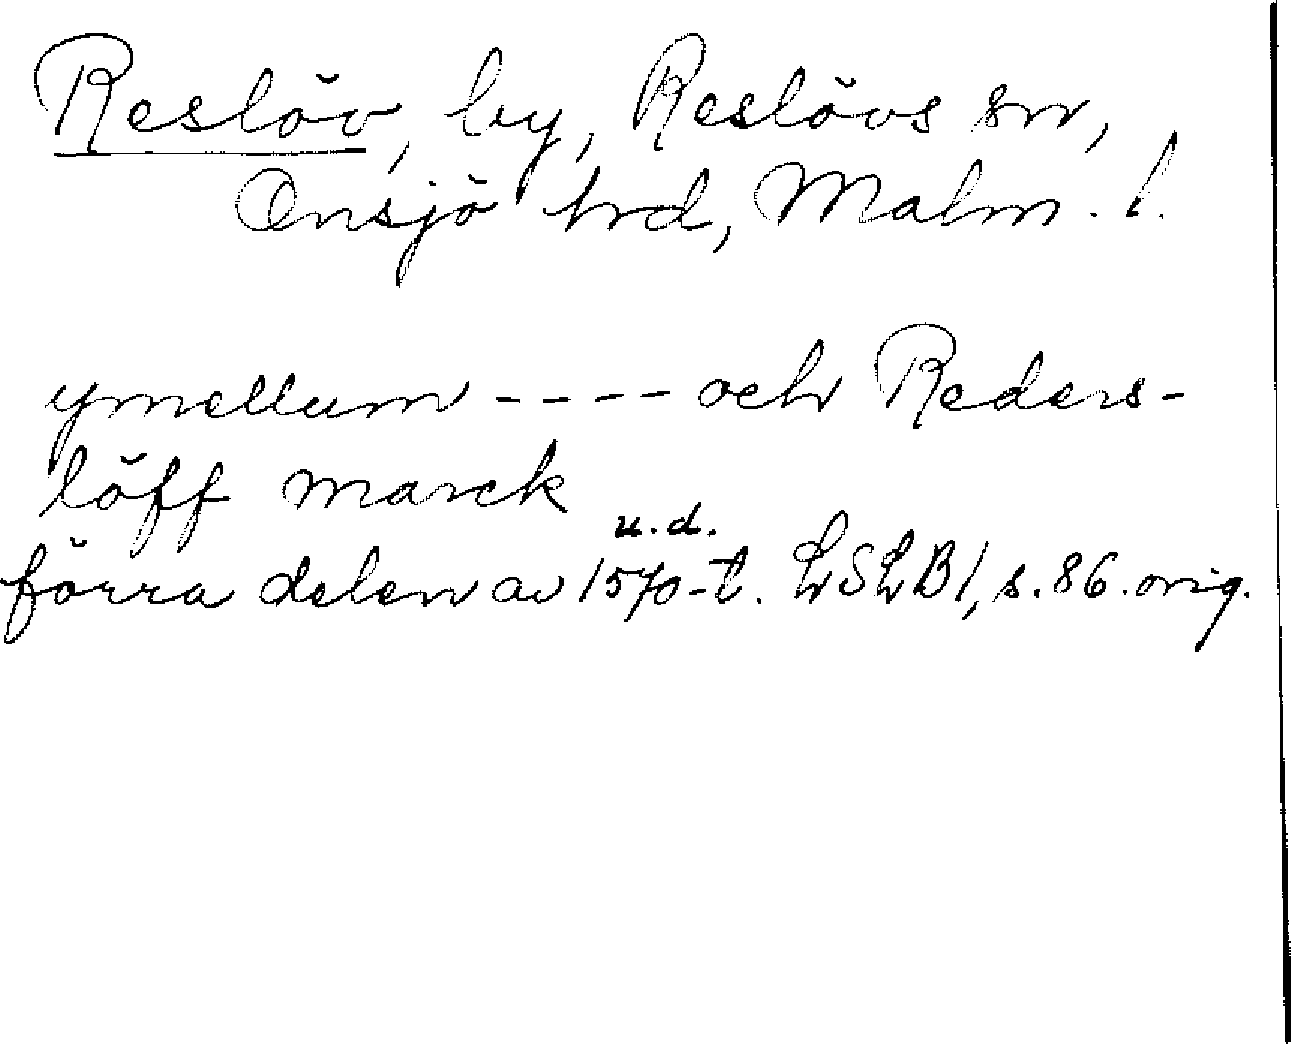 Reslöv, by, Reslövs sn,
Onsjö hrd, Malm. l.
ymellum ---- och Reders-
löff marck
u.d.
förra delen av 1570-t. LSLB1, s. 86. orig.